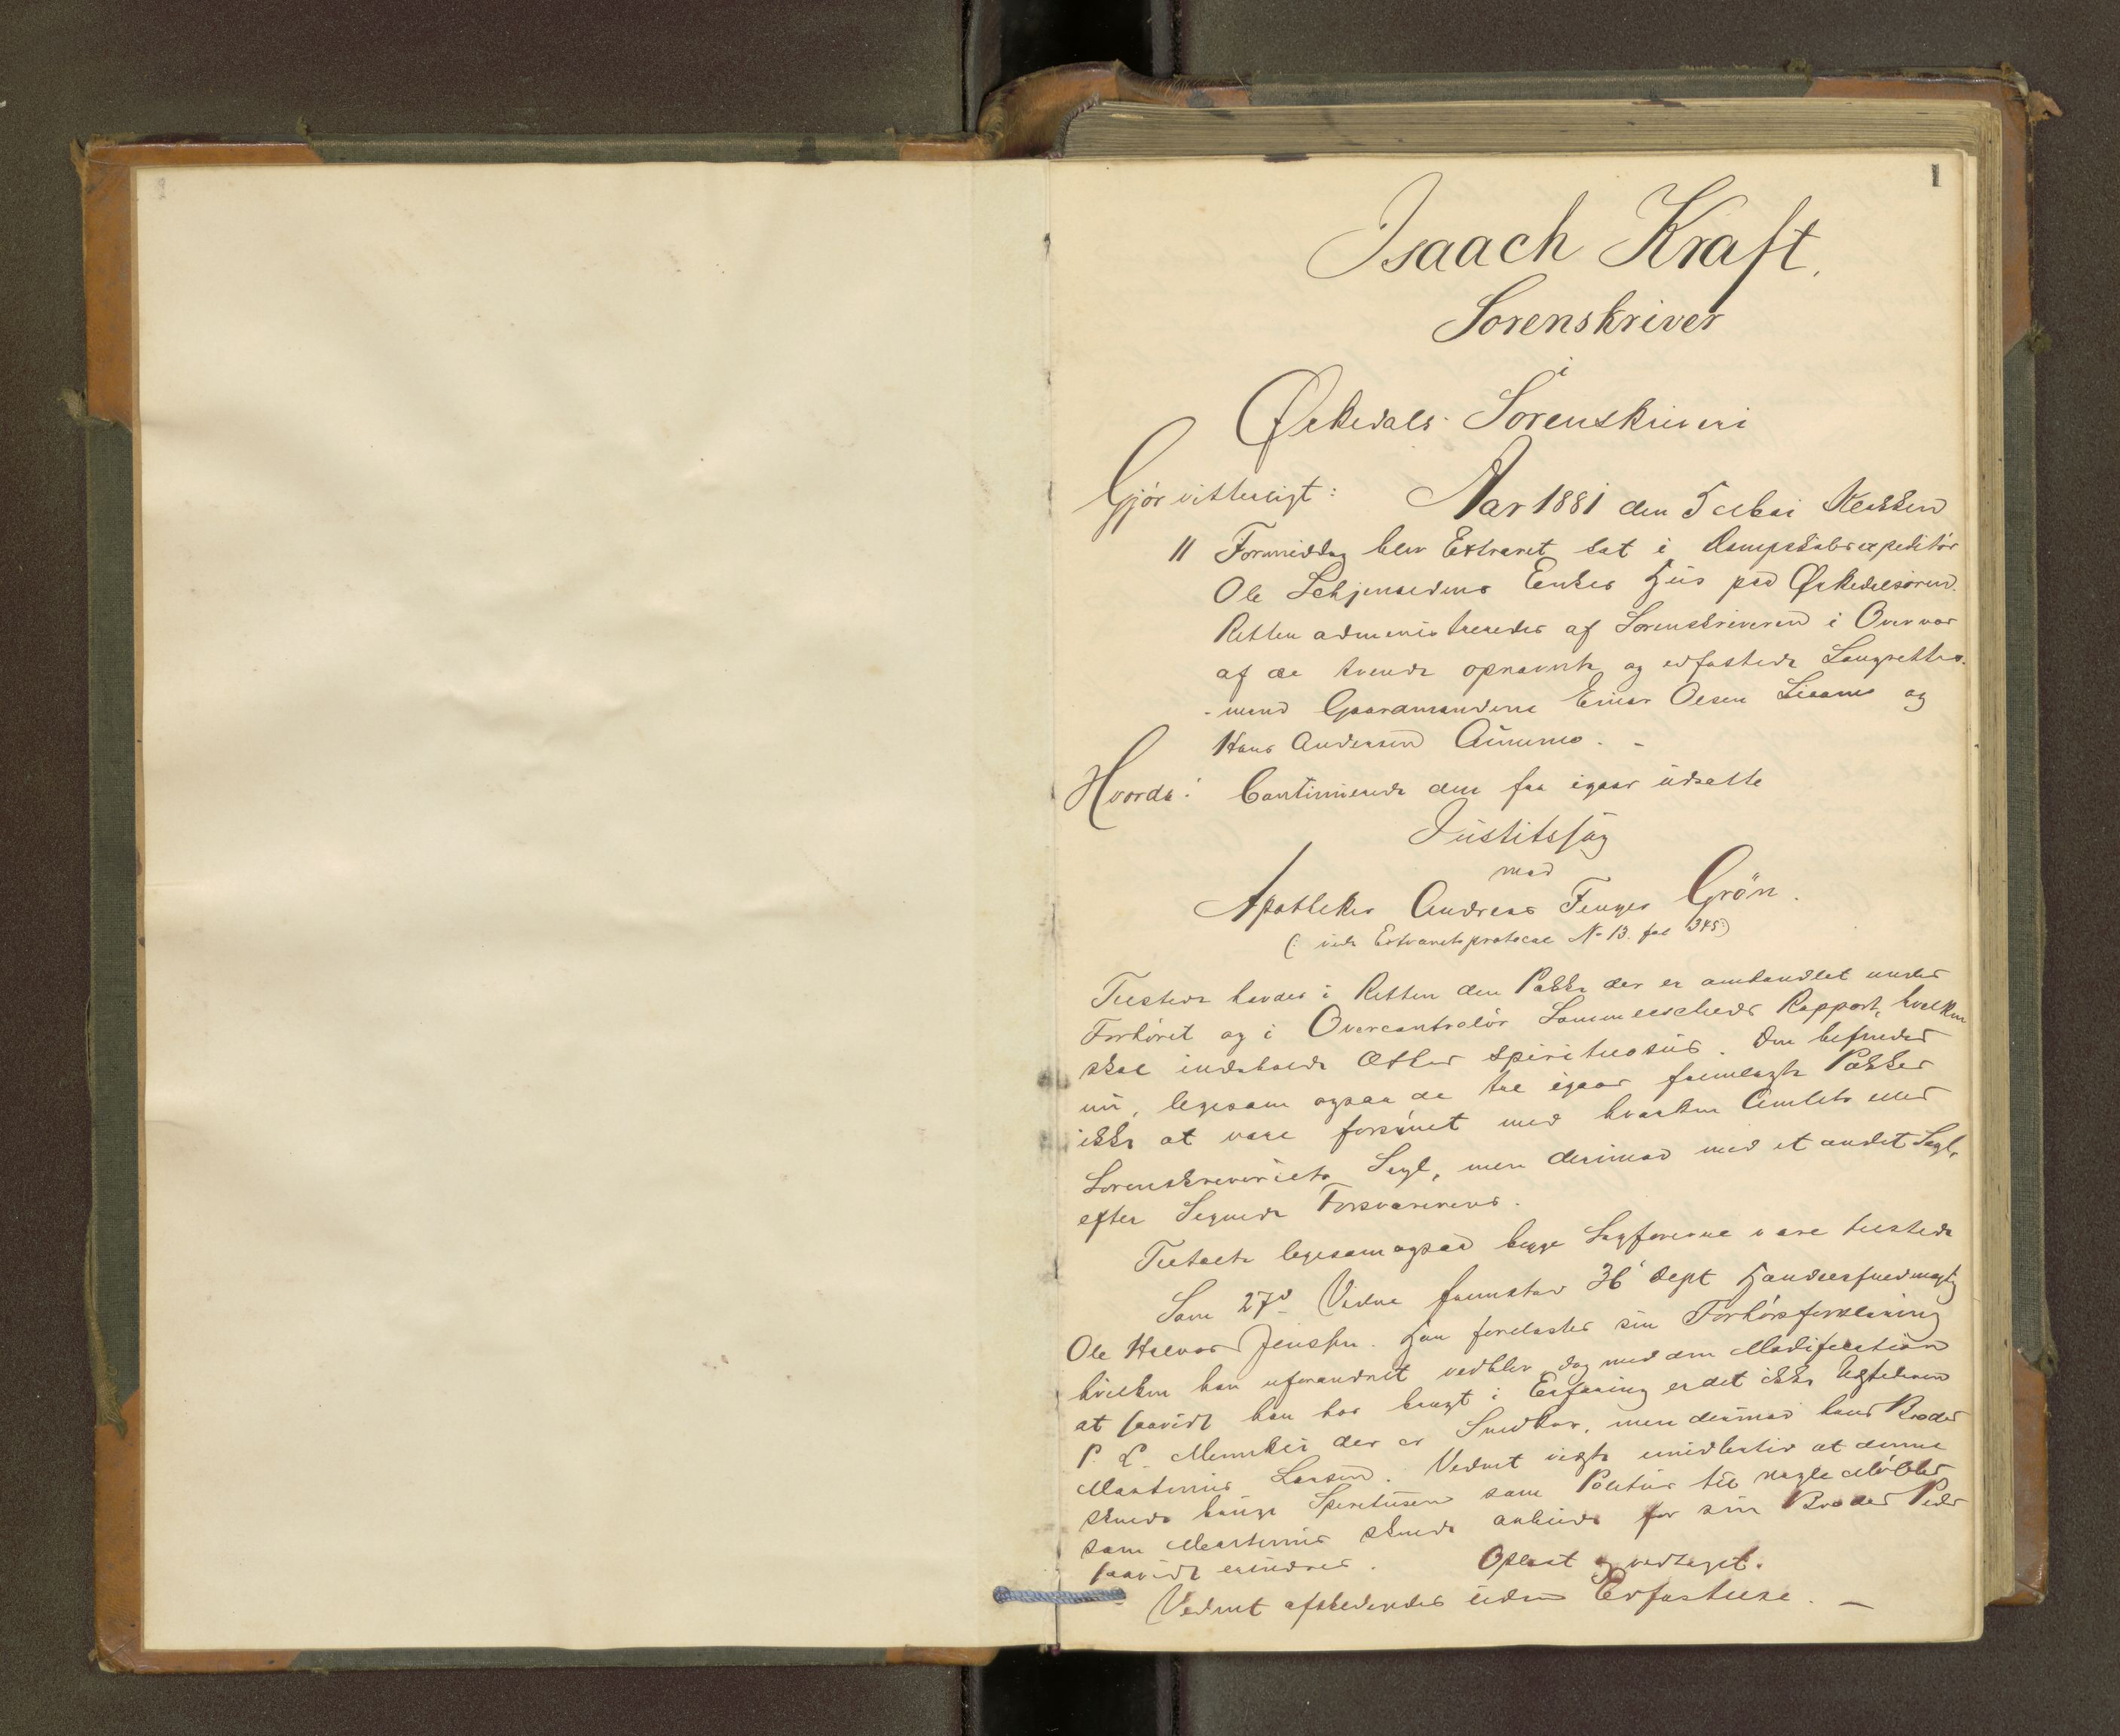 1
Isaach Kraft.
Sorenskriver
i
Ørkedals Sorenskriveri
Gjør vitterligt: Aar 1881 den 5 Mai Klokken
11 Formiddag blev Extraret sat i Dampskibsexpeditør
Ole Schjenaldens Enkes Hus paa Ørkedalsøren.
Retten administreredes af Sorenskriveren i Overvær
af de tvende opnævnte og edfæstede Laugrettes-
-mænd Gaardmændene Einar Olsen Lisamo og
Hans Andersen
Hvorda: Continuerede den fra igaar udsatte
Justitssag
mod
Apotheker Andreas Fenger Grön.
(: vide Extraretsprotocol No 13. fol 345:)
Tilstede havdes i Retten den Pakke der er omhandlet under
Forhöret og i Overcontrolör Rapport, hvilken
skal indeholde Æther spirituosus. Den befindes
nu, ligesom ogsaa de tre igaar fremlagte Pakker
ikke at være forsynet med hverken Amtets eller
Sorenskriveriets Segl, men derimod med et andet Segl,
efter Sigende Forsvarerens.
Tiltalte ligesom ogsaa begge Sagförerne vare tilstede
Som 27de Vidne fremstod 36' Dept Handelsfuldmægtig
Ole Halvor Jenssen. Han forelæstes sin Forhörsforklaring
hvilken han uforandret vedblev dog med den Modification
at saavidt han har bragt i Erfaring er det ikke Ugifteren
P. L. der er Snedker, men derimod hans Broder
Martinus Larsen. Vidnet vidste imidlertid at denne
skulde bruge Spiritusen som Politur til nogle Möbler
som Martinus skulde arbeide for sin Broder Peder
saavidt erindres. Oplæst og vedtaget.
Vidnet afskedigedes uden Edfæstelse. —